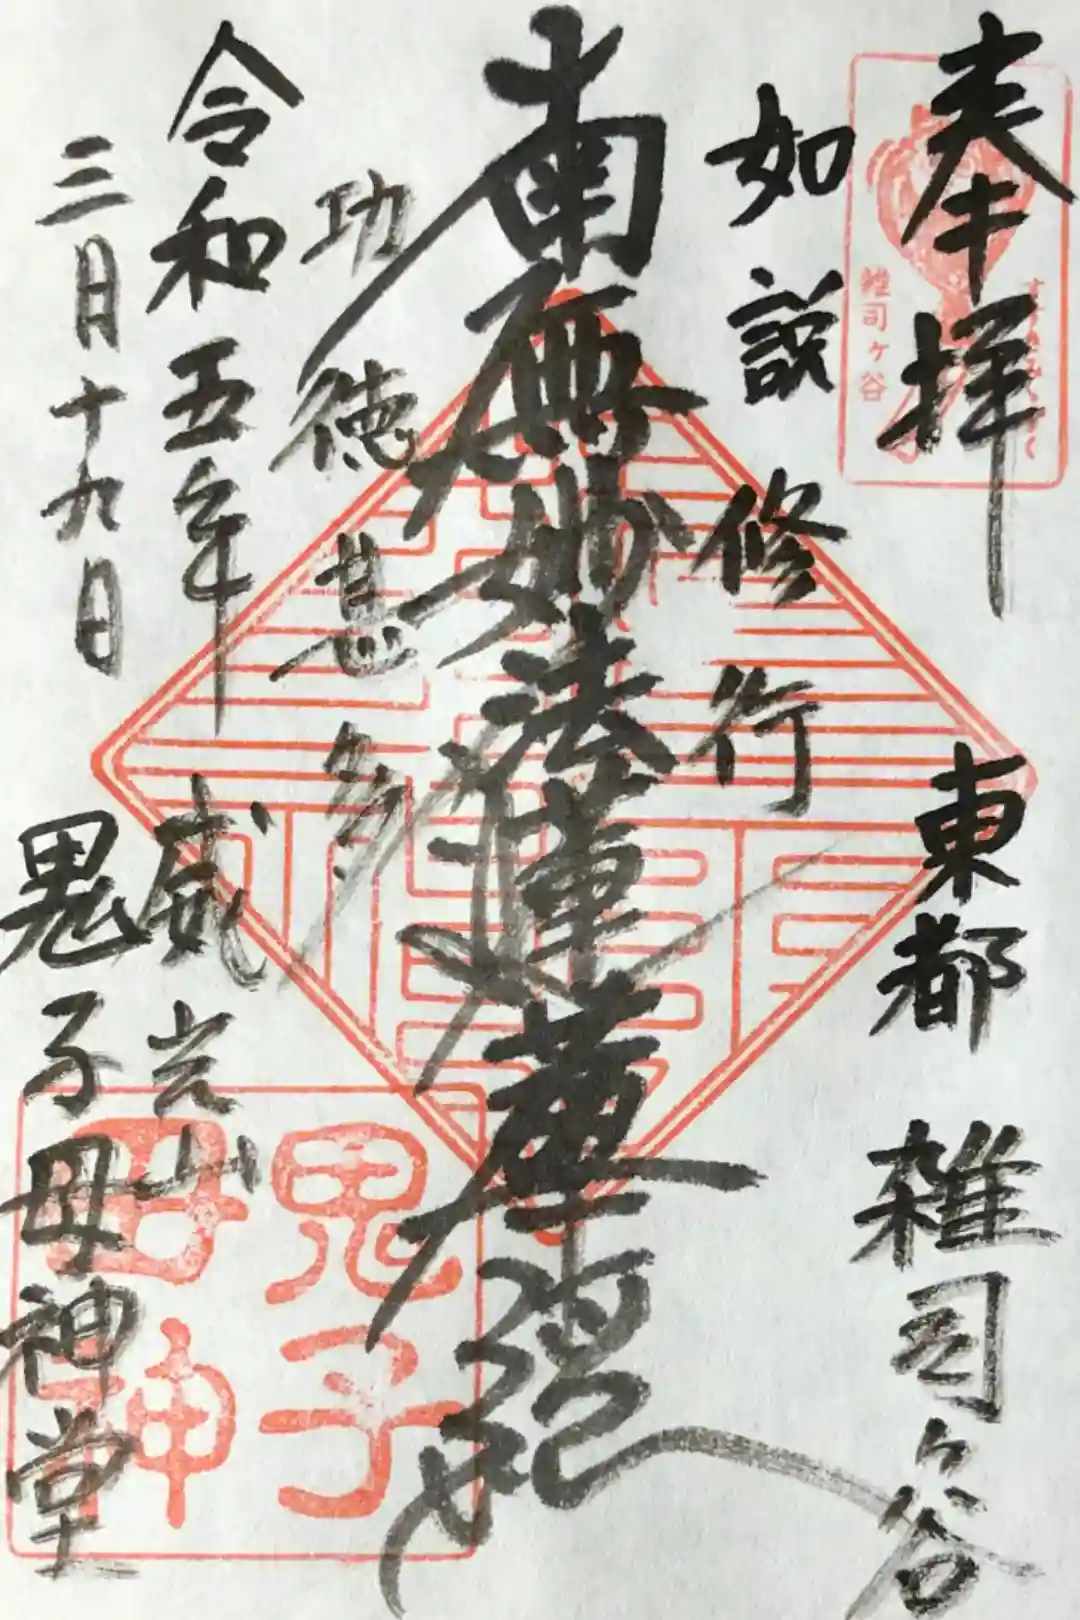 奉拝
東都 雑司ヶ谷
如説修行
南無妙法蓮華経
功徳甚多
令和五年
三月十九日
威光山
鬼子母神堂
雑司ヶ谷
すすきみみずく
鬼子
母神